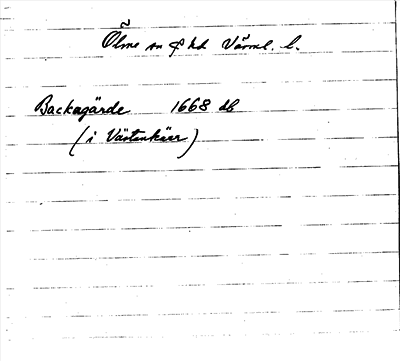 Ölme sn o hd Värml. l.
Backagärde 1668 db
(i Västankärr)